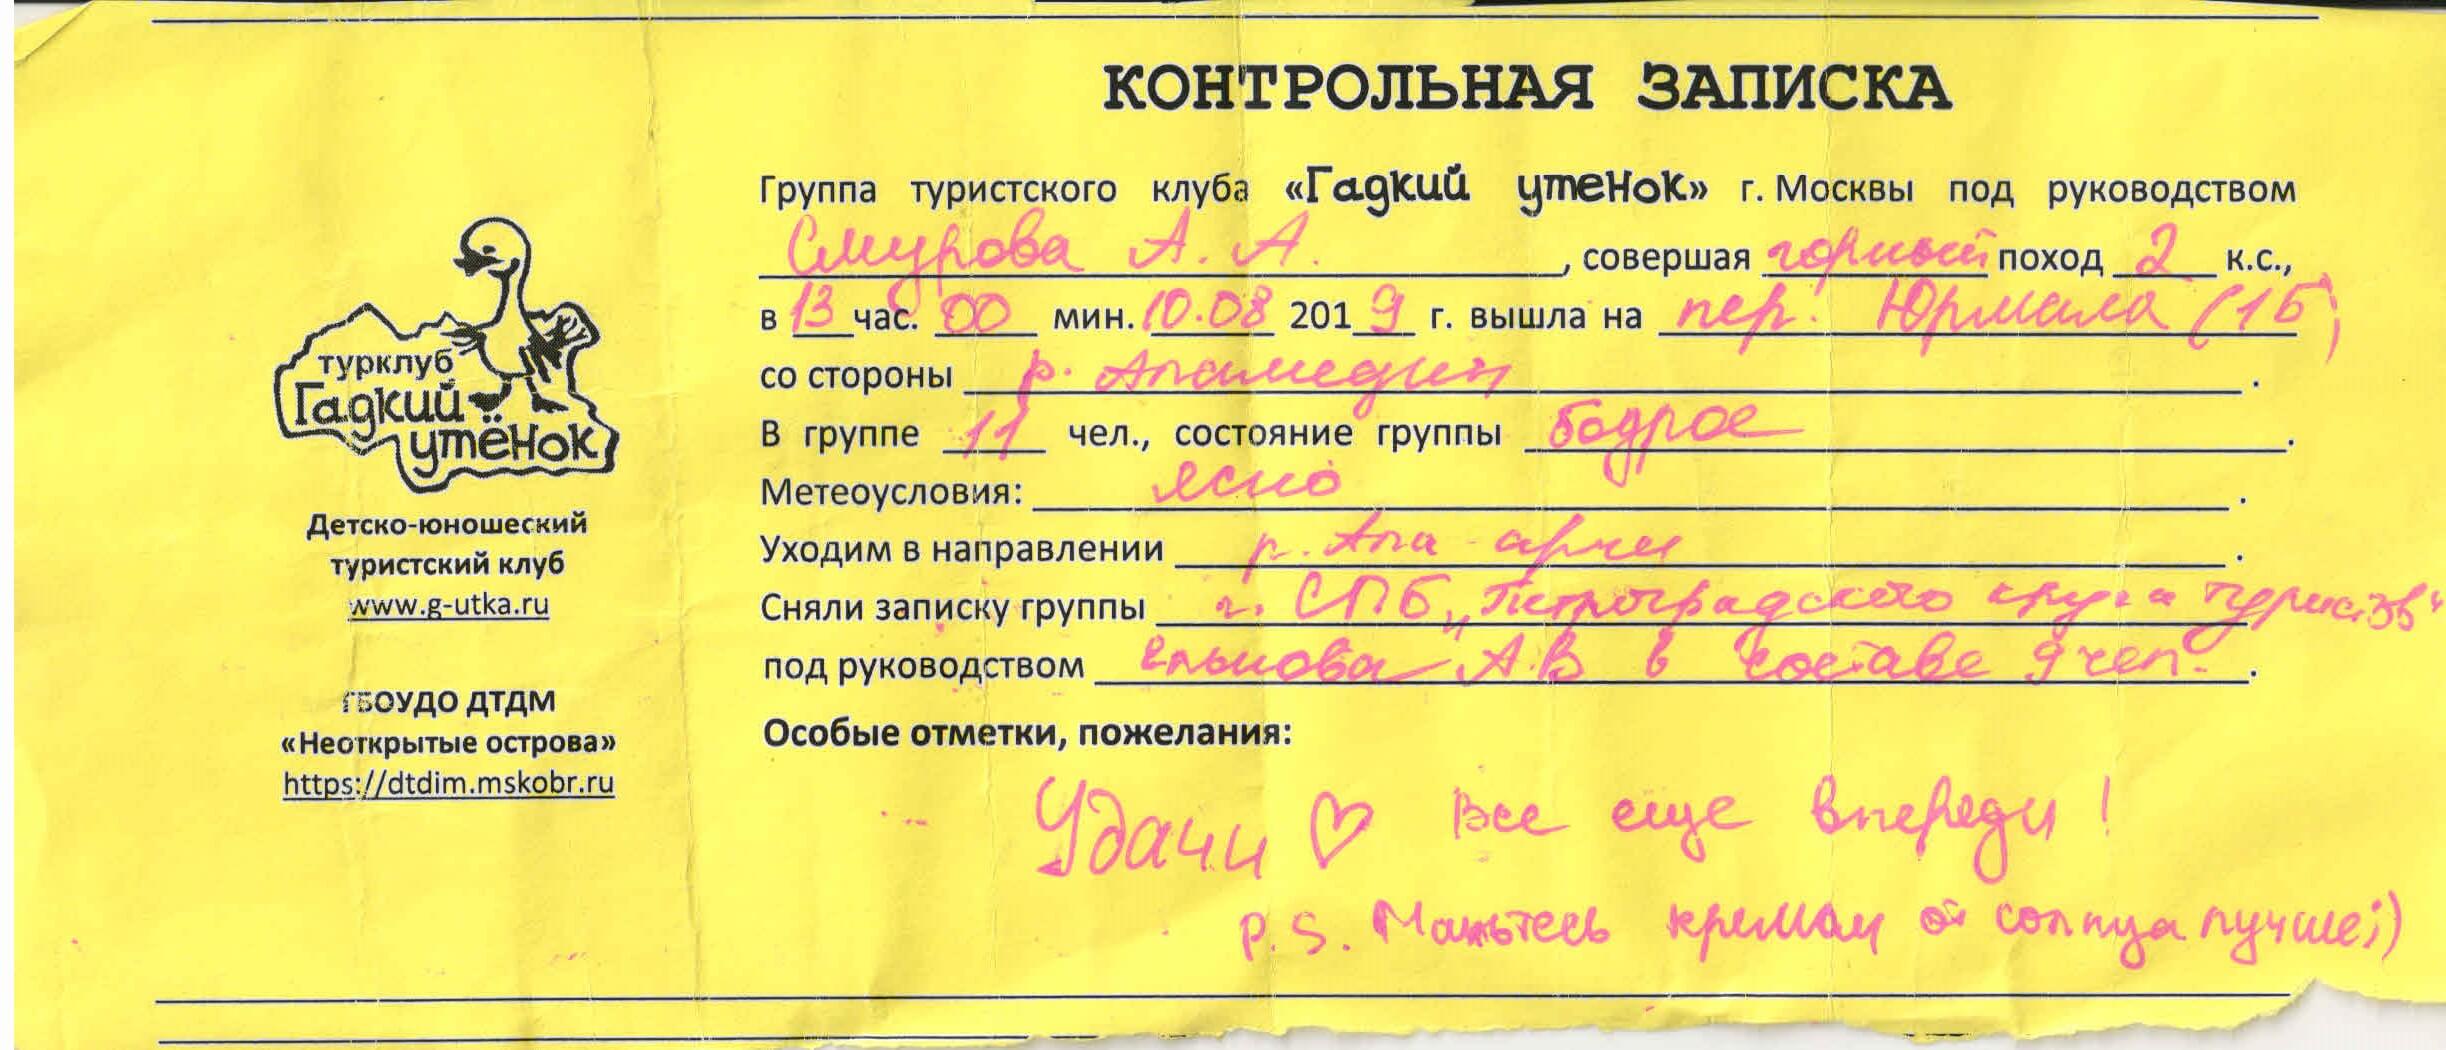 КОНТРОЛЬНАЯ ЗАПИСКА
Группа туристского клуба «Гадкий утенок» г. Москвы под руководством
Смурова А. А. , совершая горный поход 2 к.с.,
в 13 час. 00 мин. 10.08 2019 г. вышла на пер. Юрмала (1Б)
со стороны р. Аламедин .
В группе 11 чел., состояние группы бодрое .
Метеоусловия: ясно .
Уходим в направлении р. Ала-арчи .
Сняли записку группы г. СПБ, "Петроградского круга туристов"
под руководством А.В в составе 9 чел. .
Особые отметки, пожелания:
Удачи ♡ Все еще впереди!
P.S. Мажьтесь кремом от солнца лучше ;)
турклуб
Гадкий
утёнок
Детско-юношеский
туристский клуб
www.g-utka.ru
ГБОУДО ДТДМ
«Неоткрытые острова»
https://dtdim.mskobr.ru